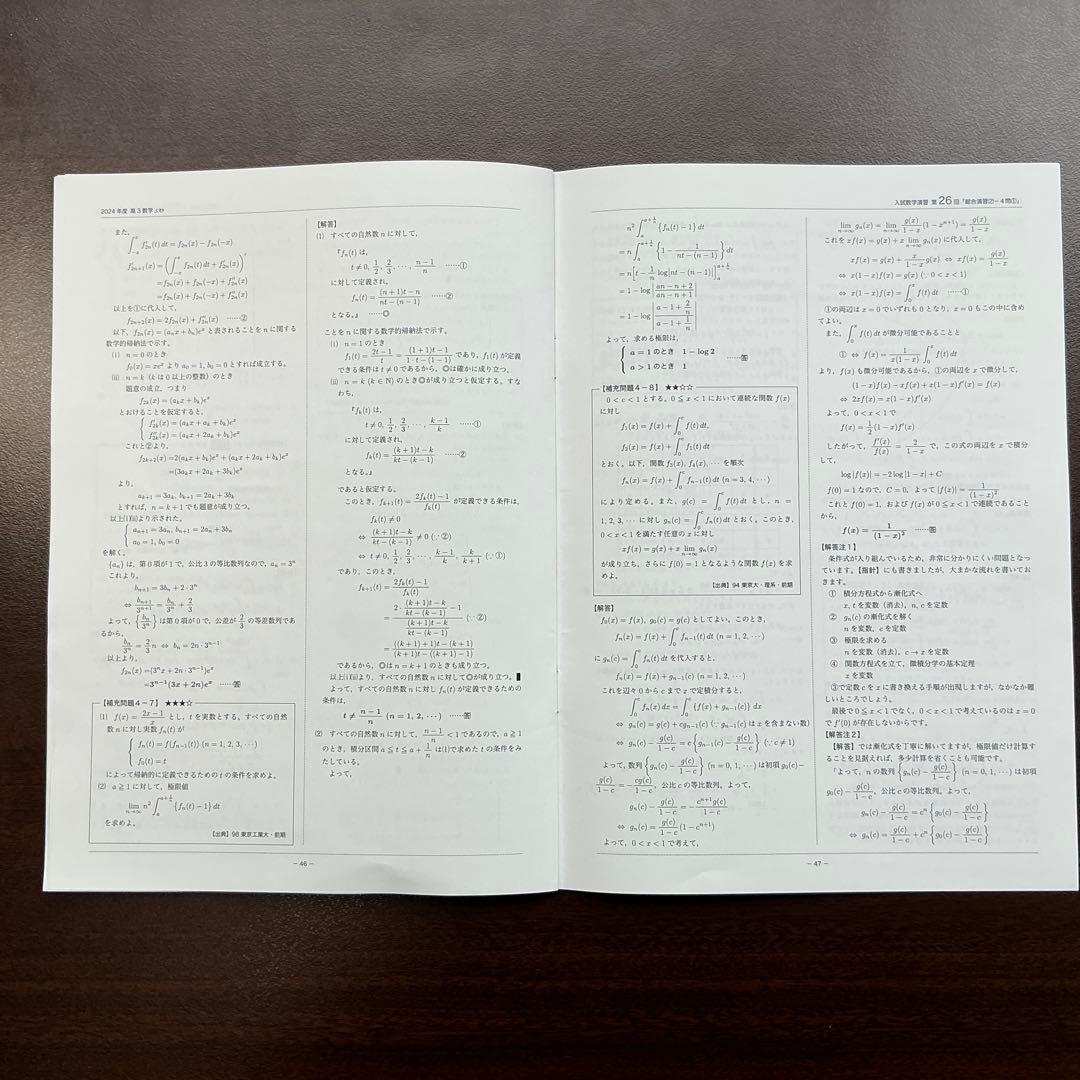 2024 年度 高3数学
また,
∫_{-x}^{x} f_{2n}(t) dt = f_{2n}(x) − f_{2n}(−x)
f'_{2n+1}(x) = (∫_{-x}^{x} f_{2n}(t) dt + f'_{2n}(x))'
= f_{2n}(x) + f_{2n}(−x) + f''_{2n}(x)
= f_{2n}(x) + f_{2n}(−x) + f''_{2n}(x)
以上を①に代入して,
f_{2n+2}(x) = 2f_{2n}(x) + f''_{2n}(x) ……②
以下, f_{2n}(x) = (a_n x + b_n)e^x と表されることを n に関する
数学的帰納法で示す。
(i) n = 0 のとき
f_0(x) = xe^x より a_0 = 1, b_0 = 0 とすれば成立する。
(ii) n = k (k は 0 以上の整数) のとき
題意の成立, つまり
f_{2k}(x) = (a_k x + b_k)e^x
とおけることを仮定すると,
{ f'_{2k}(x) = (a_k x + a_k + b_k)e^x
f''_{2k}(x) = (a_k x + 2a_k + b_k)e^x
これと②より,
f_{2k+2}(x) = 2(a_k x + b_k)e^x + (a_k x + 2a_k + b_k)e^x
= (3a_k x + 2a_k + 3b_k)e^x
より,
a_{k+1} = 3a_k, b_{k+1} = 2a_k + 3b_k
とすれば, n = k + 1 でも題意が成り立つ。
以上(i)(ii)より示された。
{ a_{n+1} = 3a_n, b_{n+1} = 2a_n + 3b_n
a_0 = 1, b_0 = 0
を解く。
{a_n} は, 第 0 項が 1 で, 公比 3 の等比数列なので, a_n = 3^n
これより,
b_{n+1} = 3b_n + 2·3^n
⇔ b_{n+1}/3^{n+1} = b_n/3^n + 2/3
よって, {b_n/3^n} は第 0 項が 0, 公差が 2/3 の等差数列であ
るから,
b_n/3^n = 2/3 n ⇔ b_n = 2n·3^{n−1}
以上より,
f_{2n}(x) = (3^n x + 2n·3^{n−1})e^x
= 3^{n−1}(3x + 2n)e^x ……答
【補充問題4−7】 ★★★☆
(1) f(x) = (2x−1)/x とし, t を実数とする。すべての自然
数 n に対し実数 f_n(t) が
{ f_n(t) = f(f_{n−1}(t)) (n = 1, 2, 3, ···)
f_0(t) = t
によって帰納的に定義できるための t の条件を求めよ。
(2) a ≧ 1 に対して, 極限値
lim_{n→∞} n² ∫_a^{a+1/n} {f_n(t) − 1} dt
を求めよ。
【出典】98 東京工業大・前期
【解答】
(1) すべての自然数 n に対して,
『f_n(t) は,
t ≠ 0, 1/2, 2/3, ···, (n−1)/n ……①
に対して定義され,
f_n(t) = ((n+1)t−n)/(nt−(n−1)) ……②
となる。』 ……◎
ことを n に関する数学的帰納法で示す。
(i) n = 1 のとき
f_1(t) = (2t−1)/t = ((1+1)t−1)/(1·t−(1−1)) であり, f_1(t) が定義
できる条件は t ≠ 0 であるから, ◎は確かに成り立つ。
(ii) n = k (k ∈ N) のとき◎が成り立つと仮定する。すな
わち,
『f_k(t) は,
t ≠ 0, 1/2, 2/3, ···, (k−1)/k ……①
に対して定義され,
f_k(t) = ((k+1)t−k)/(kt−(k−1)) ……②
となる。』
であると仮定する。
このとき, f_{k+1}(t) = (2f_k(t)−1)/f_k(t) が定義できる条件は,
f_k(t) ≠ 0
⇔ ((k+1)t−k)/(kt−(k−1)) ≠ 0 (∵②)
⇔ t ≠ 0, 1/2, 2/3, ···, (k−1)/k, k/(k+1) (∵①)
であり, このとき,
f_{k+1}(t) = (2f_k(t)−1)/f_k(t)
= (2·((k+1)t−k)/(kt−(k−1)) − 1)/(((k+1)t−k)/(kt−(k−1))) (∵②)
= (((k+1)+1)t−(k+1))/((k+1)t−((k+1)−1))
であるから, ◎は n = k + 1 のときも成り立つ。
以上(i)(ii)より, すべての自然数 n に対して◎が成り立つ。■
よって, すべての自然数 n に対し f_n(t) が定義できるための
条件は,
t ≠ (n−1)/n (n = 1, 2, ···) ……答
(2) すべての自然数 n に対して, (n−1)/n < 1 であるので, a ≧ 1
のとき, 積分区間 a ≦ t ≦ a + 1/n は(1)で求めた t の条件をみ
たしている。
よって,
− 46 −
入試数学演習 第 26 回「総合演習(2)−4問①」
n² ∫_a^{a+1/n} {f_n(t) − 1} dt
= n ∫_a^{a+1/n} {1 − 1/(nt−(n−1))} dt
= n[t − 1/n log|nt−(n−1)|]_a^{a+1/n}
= 1 − log|(an−n+2)/(an−n+1)|
= 1 − log|(a−1+2/n)/(a−1+1/n)|
よって, 求める極限は,
{ a = 1 のとき 1 − log 2
a > 1 のとき 1 ……答
【補充問題4−8】 ★★☆☆
0 < c < 1 とする。0 ≦ x < 1 において連続な関数 f(x)
に対し
f_1(x) = f(x) + ∫_0^c f(t) dt,
f_2(x) = f(x) + ∫_0^c f_1(t) dt
とおく。以下, 関数 f_3(x), f_4(x), ··· を順次
f_n(x) = f(x) + ∫_0^c f_{n−1}(t) dt (n = 3, 4, ···)
により定める。また, g(c) = ∫_0^c f(t) dt とし, n =
1, 2, 3, ··· に対し g_n(c) = ∫_0^c f_n(t) dt とおく。このとき,
0 < x < 1 を満たす任意の x に対し
xf(x) = g(x) + x lim_{n→∞} g_n(x)
が成り立ち, さらに f(0) = 1 となるような関数 f(x) を求
めよ。
【出典】94 東京大・理系・前期
【解答】
f_0(x) = f(x), g_0(c) = g(c) としてよい。このとき,
f_n(x) = f(x) + ∫_0^c f_{n−1}(t) dt (n = 1, 2, ···)
に g_n(c) = ∫_0^c f_n(t) dt を代入すると,
f_n(x) = f(x) + g_{n−1}(c) (n = 1, 2, ···)
これを辺々 0 から c まで x で定積分すると,
∫_0^c f_n(x) dx = ∫_0^c {f(x) + g_{n−1}(c)} dx
⇔ g_n(c) = g(c) + cg_{n−1}(c) (∵ g_{n−1}(c) は x を含まない数)
⇔ g_n(c) − g(c)/(1−c) = c{g_{n−1}(c) − g(c)/(1−c)} (∵ c ≠ 1)
よって, 数列 {g_n(c) − g(c)/(1−c)} (n = 0, 1, ···) は初項 g_0(c)−
g(c)/(1−c) = −cg(c)/(1−c), 公比 c の等比数列。よって,
g_n(c) − g(c)/(1−c) = −c^{n+1}g(c)/(1−c)
⇔ g_n(c) = g(c)/(1−c) (1 − c^{n+1})
よって, 0 < x < 1 で考えて,
lim_{n→∞} g_n(x) = lim_{n→∞} g(x)/(1−x) (1 − x^{n+1}) = g(x)/(1−x)
これを xf(x) = g(x) + x lim_{n→∞} g_n(x) に代入して,
xf(x) = g(x) + x/(1−x) g(x) ⇔ xf(x) = g(x)/(1−x)
⇔ x(1−x)f(x) = g(x) (∵ 0 < x < 1)
⇔ x(1−x)f(x) = ∫_0^x f(t) dt ……①
①の両辺は x = 0 でいずれも 0 となり, x = 0 もこの中に含め
てよい。
また, ∫_0^x f(t) dt が微分可能であることと
① ⇔ f(x) = 1/(x(1−x)) ∫_0^x f(t) dt
より, f(x) も微分可能であるから, ①の両辺を x で微分して,
(1−x)f(x) − xf(x) + x(1−x)f'(x) = f(x)
⇔ 2xf(x) = x(1−x)f'(x)
よって, 0 < x < 1 で
f(x) = 1/2 (1−x)f'(x)
したがって, f'(x)/f(x) = 2/(1−x) で, この式の両辺を x で積分
して,
log|f(x)| = −2 log|1−x| + C
f(0) = 1 なので, C = 0, よって |f(x)| = 1/(1−x)²
これと f(0) = 1, および f(x) が 0 ≦ x < 1 で連続であること
から,
f(x) = 1/(1−x)² ……答
【解答注1】
条件式が入り組んでいるため, 非常に分かりにくい問題となっ
ています。【指針】にも書きましたが, 大まかな流れを書いてお
きます。
① 積分方程式から漸化式へ
x, t を変数（消去）, n, c を定数
② g_n(c) の漸化式を解く
n を変数, c を定数
③ 極限を求める
n を変数（消去）, c → x を定数
④ 関数方程式を立て, 微積分学の基本定理
x を変数
③で定数 c を x に書き換える手順が出現しますが, なかなか難
しいところでしょう。
最後で 0 ≦ x < 1 でなく, 0 < x < 1 で考えているのは x = 0
で f'(0) が存在しないからです。
【解答注2】
【解答】では漸化式を丁寧に解いてますが, 極限値だけ計算す
ることを見据えれば, 多少計算を省くことも可能です。
「よって, n の数列 {g_n(c) − g(c)/(1−c)} (n = 0, 1, ···) は初項
g_0(c) − g(c)/(1−c), 公比 c の等比数列。よって,
g_n(c) − g(c)/(1−c) = c^n {g_0(c) − g(c)/(1−c)}
⇔ g_n(c) = g(c)/(1−c) + c^n {g_0(c) − g(c)/(1−c)}
− 47 −